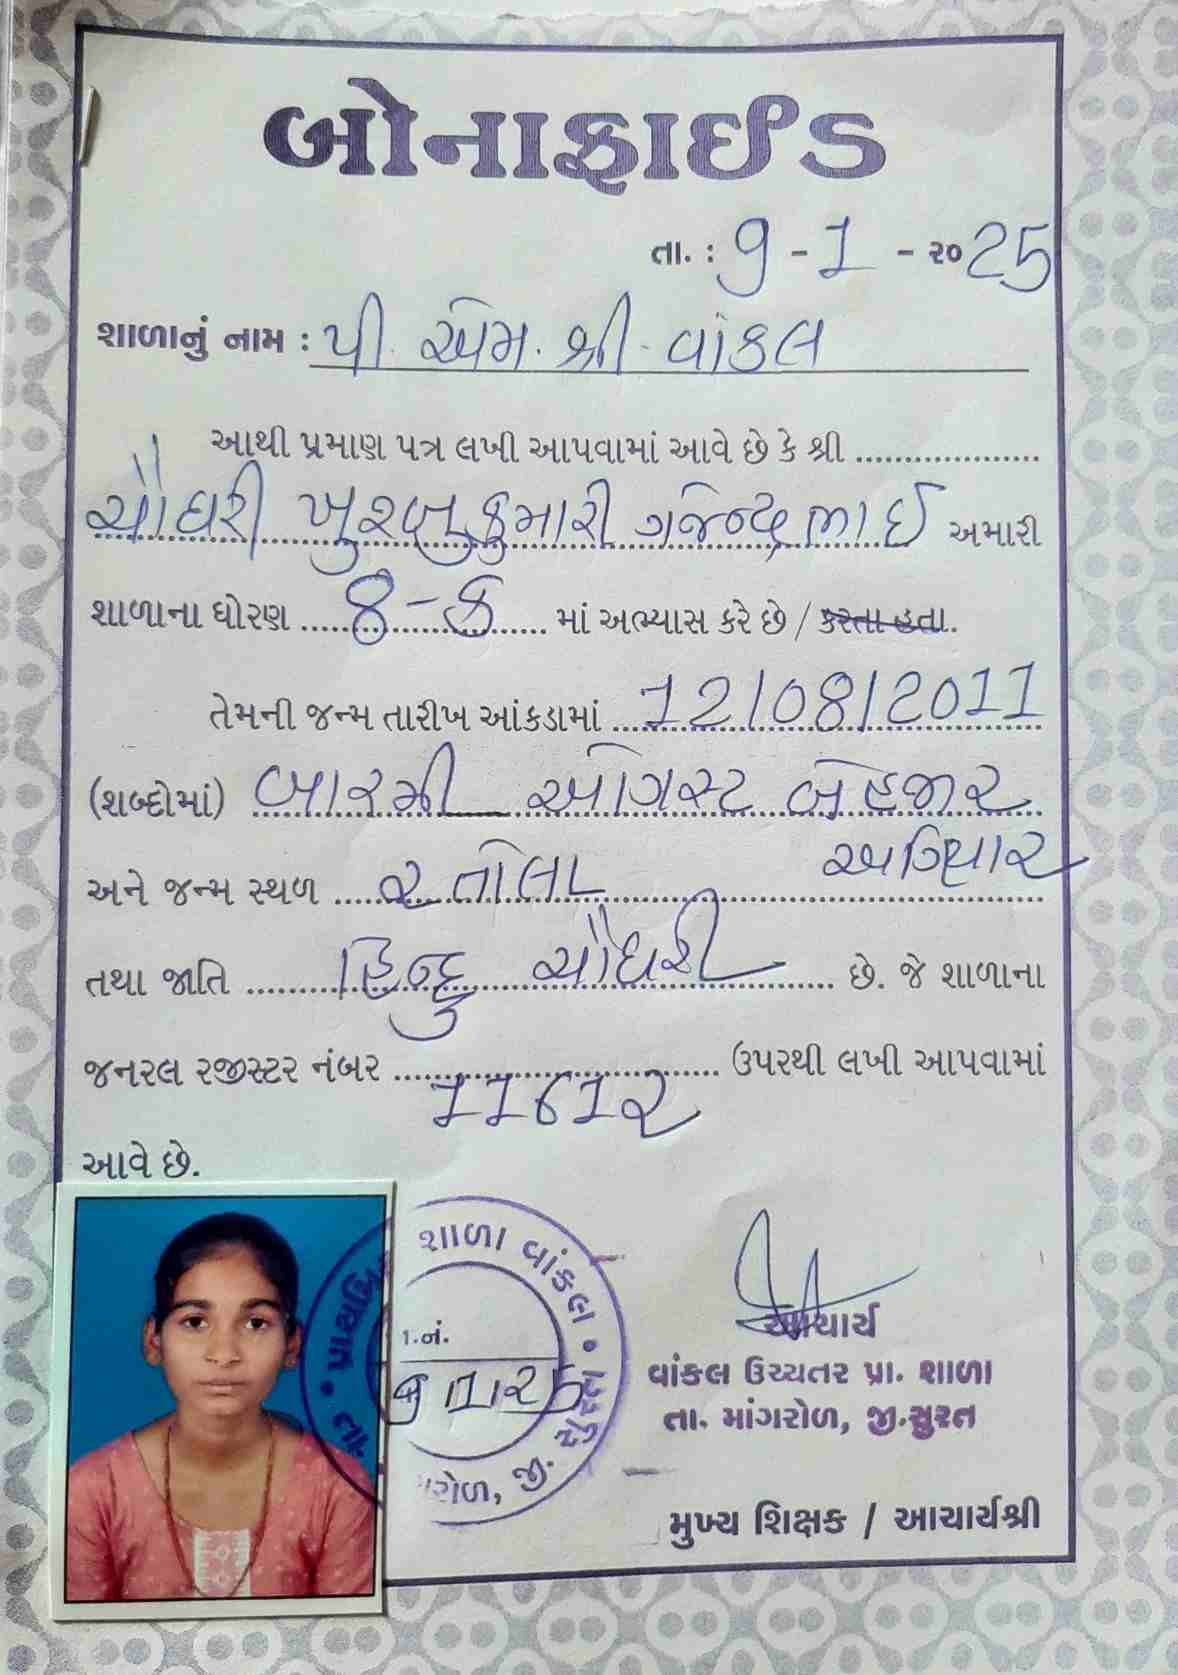 બોનાફાઈડ
તા. : 9 - 1 - ૨૦25
શાળાનું નામ : પી. એમ. શ્રી. વાંકલ
આથી પ્રમાણ પત્ર લખી આપવામાં આવે છે કે શ્રી ....................
ચૌધરી ખુશ્બુકુમારી ગજેન્દ્રભાઈ અમારી
શાળાના ધોરણ ..... 8-ક ..... માં અભ્યાસ કરે છે / કરતા હતા.
તેમની જન્મ તારીખ આંકડામાં 12/08/2011
(શબ્દોમાં) બારમી ઓગસ્ટ બેહજાર
અગિયાર
અને જન્મ સ્થળ ..... રતોલા .....
તથા જાતિ ..... હિન્દુ ચૌધરી ..... છે. જે શાળાના
જનરલ રજીસ્ટર નંબર ..... ઉપરથી લખી આપવામાં
આવે છે.
શાળા વાંકલ •
૧.નં.
જી.
આચાર્ય
વાંકલ ઉચ્ચતર પ્રા. શાળા
તા. માંગરોળ, જી.સુરત
મુખ્ય શિક્ષક / આચાર્યશ્રી